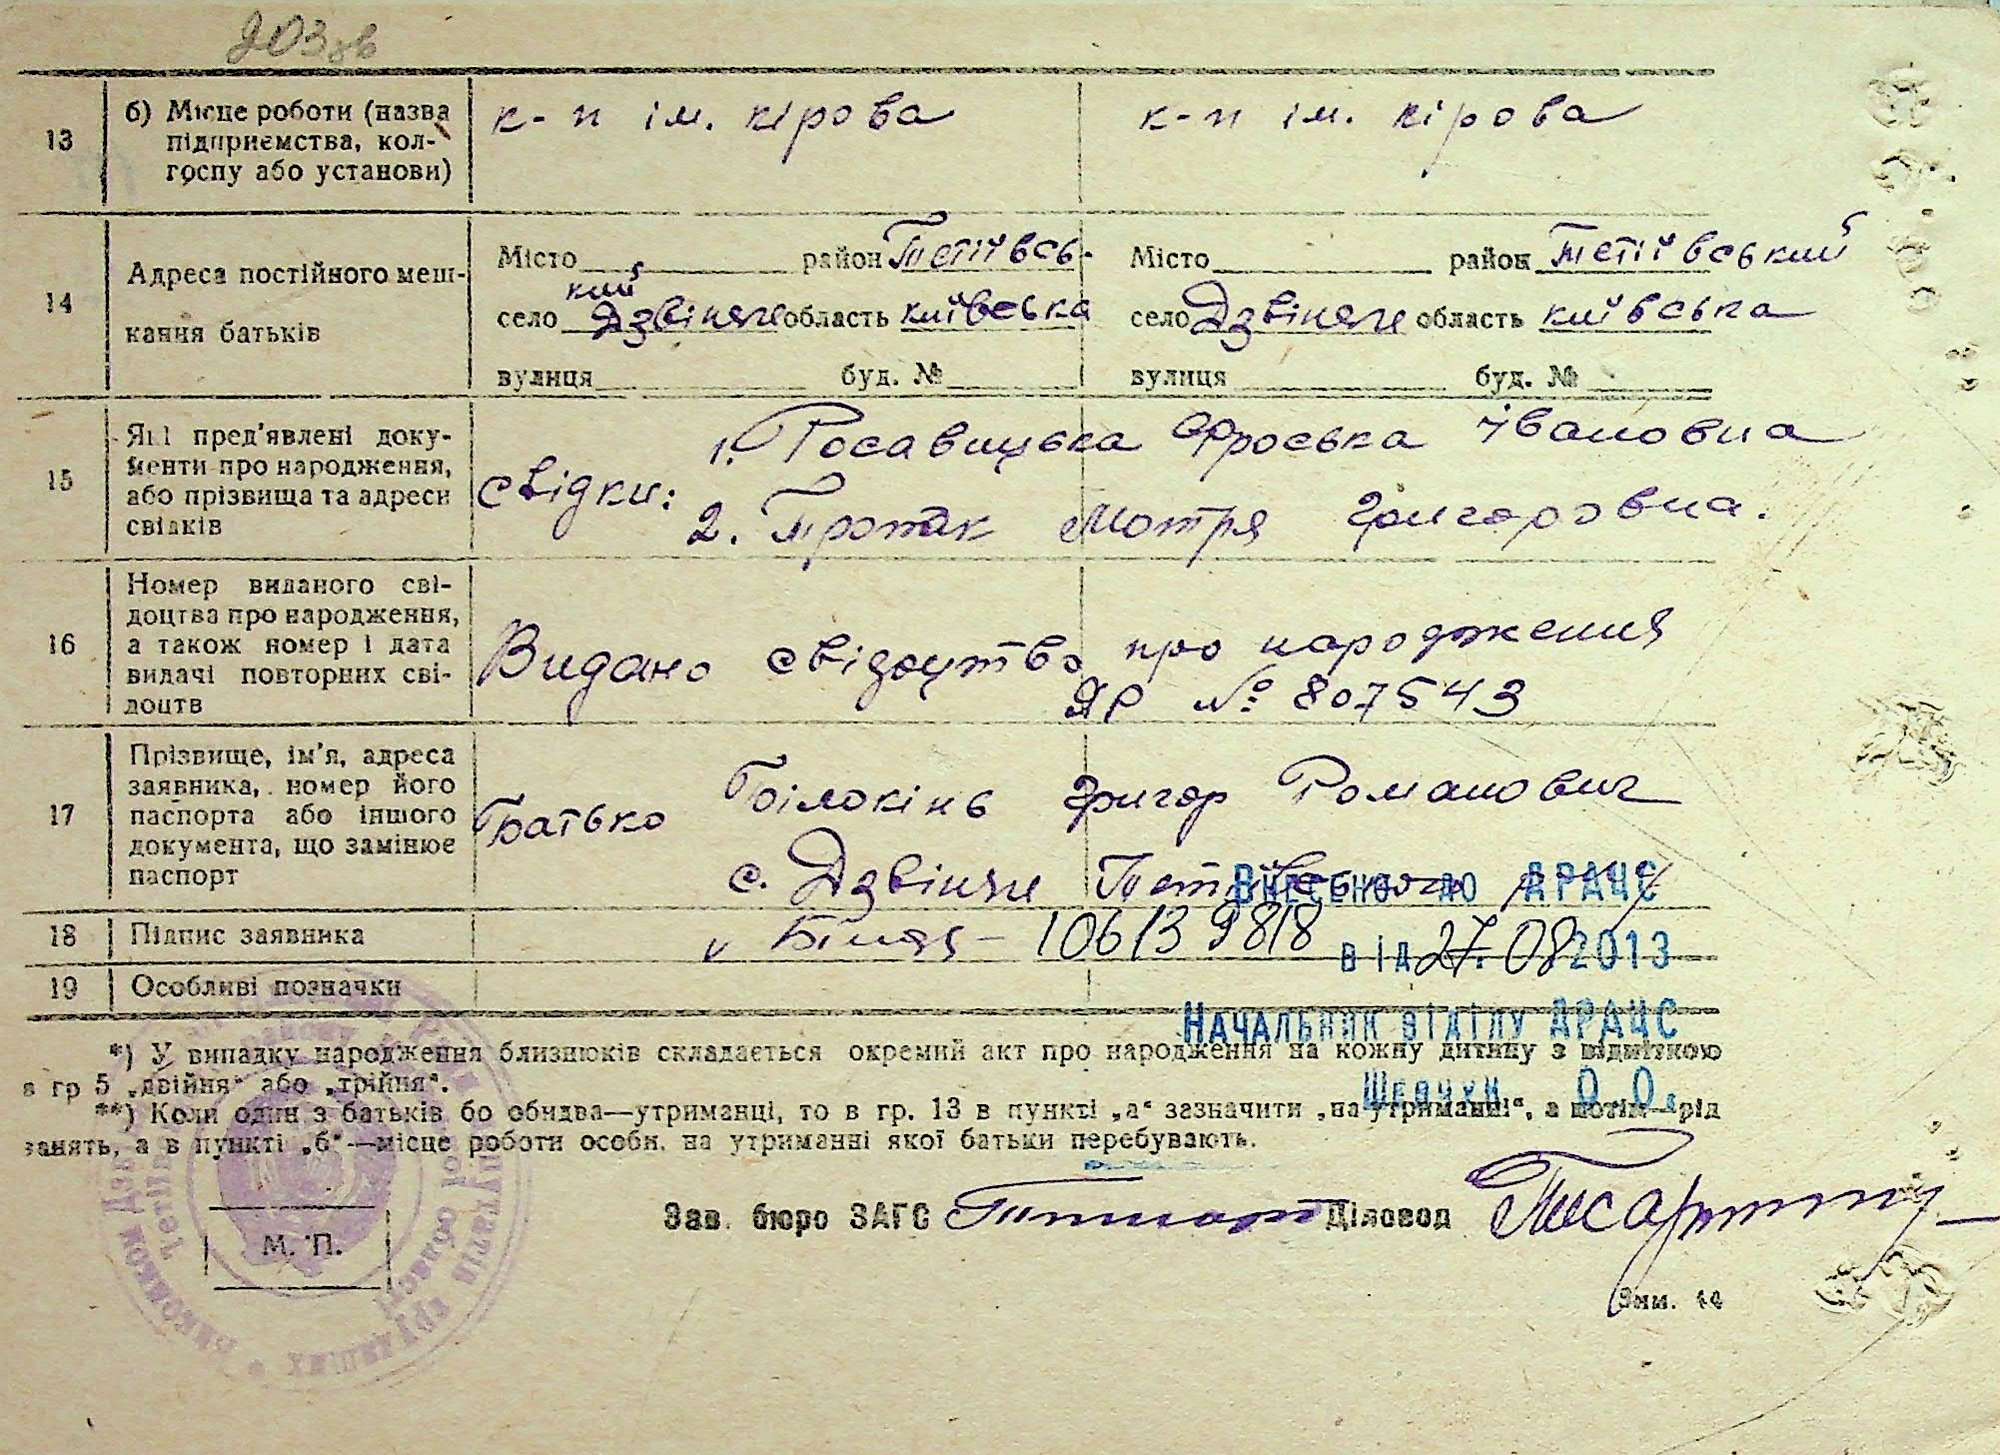 203 зв
13 б) Місце роботи (назва підприємства, колгоспу або установи) к-п ім. кірова к-п ім. кірова
14 Адреса постійного мешкання батьків
Місто район Тетіївський Місто район Тетіївський
село Дзвіняче область київська село Дзвіняче область київська
вулиця буд. № вулиця буд. №
15 Які пред'явлені документи про народження, або прізвища та адреси свідків
свідки: 1. Росавицька Фроська Івановна
2. Протак Мотря Григоровна.
16 Номер виданого свідоцтва про народження, а також номер і дата видачі повторних свідоцтв
Видано свідоцтво про народження
ЯР № 807543
17 Прізвище, ім'я, адреса заявника, номер його паспорта або іншого документа, що замінює паспорт
Батько Білокінь Григор Романович
с. Дзвіняче Тетіївського р-ну
Внесено до ДРАЦС
18 Підпис заявника 10613 9818
від 27.08 2013
19 Особливі позначки
Начальник відділу ДРАЦС
*) У випадку народження близнюків складається окремий акт про народження на кожну дитину з відміткою
в гр 5 „двійня“ або „трійня“.
О.О.
**) Коли один з батьків бо обидва—утриманці, то в гр. 13 в пункті „а“ зазначити „на утриманні“, а потім—рід
занять, а в пункті „б“—місце роботи особи, на утриманні якої батьки перебувають.
Зав. бюро ЗАГС Діловод
М. П.
Зам. 14